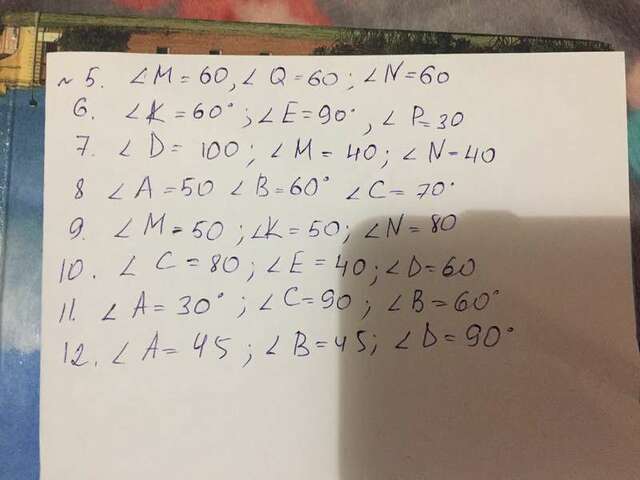 № 5. ∠M=60, ∠Q=60; ∠N=60
6. ∠K=60°; ∠E=90°, ∠P=30
7. ∠D=100; ∠M=40; ∠N=40
8 ∠A=50 ∠B=60° ∠C=70°
9. ∠M=50; ∠K=50; ∠N=80
10. ∠C=80; ∠E=40; ∠D=60
11. ∠A=30°; ∠C=90; ∠B=60°
12. ∠A=45; ∠B=45; ∠D=90°